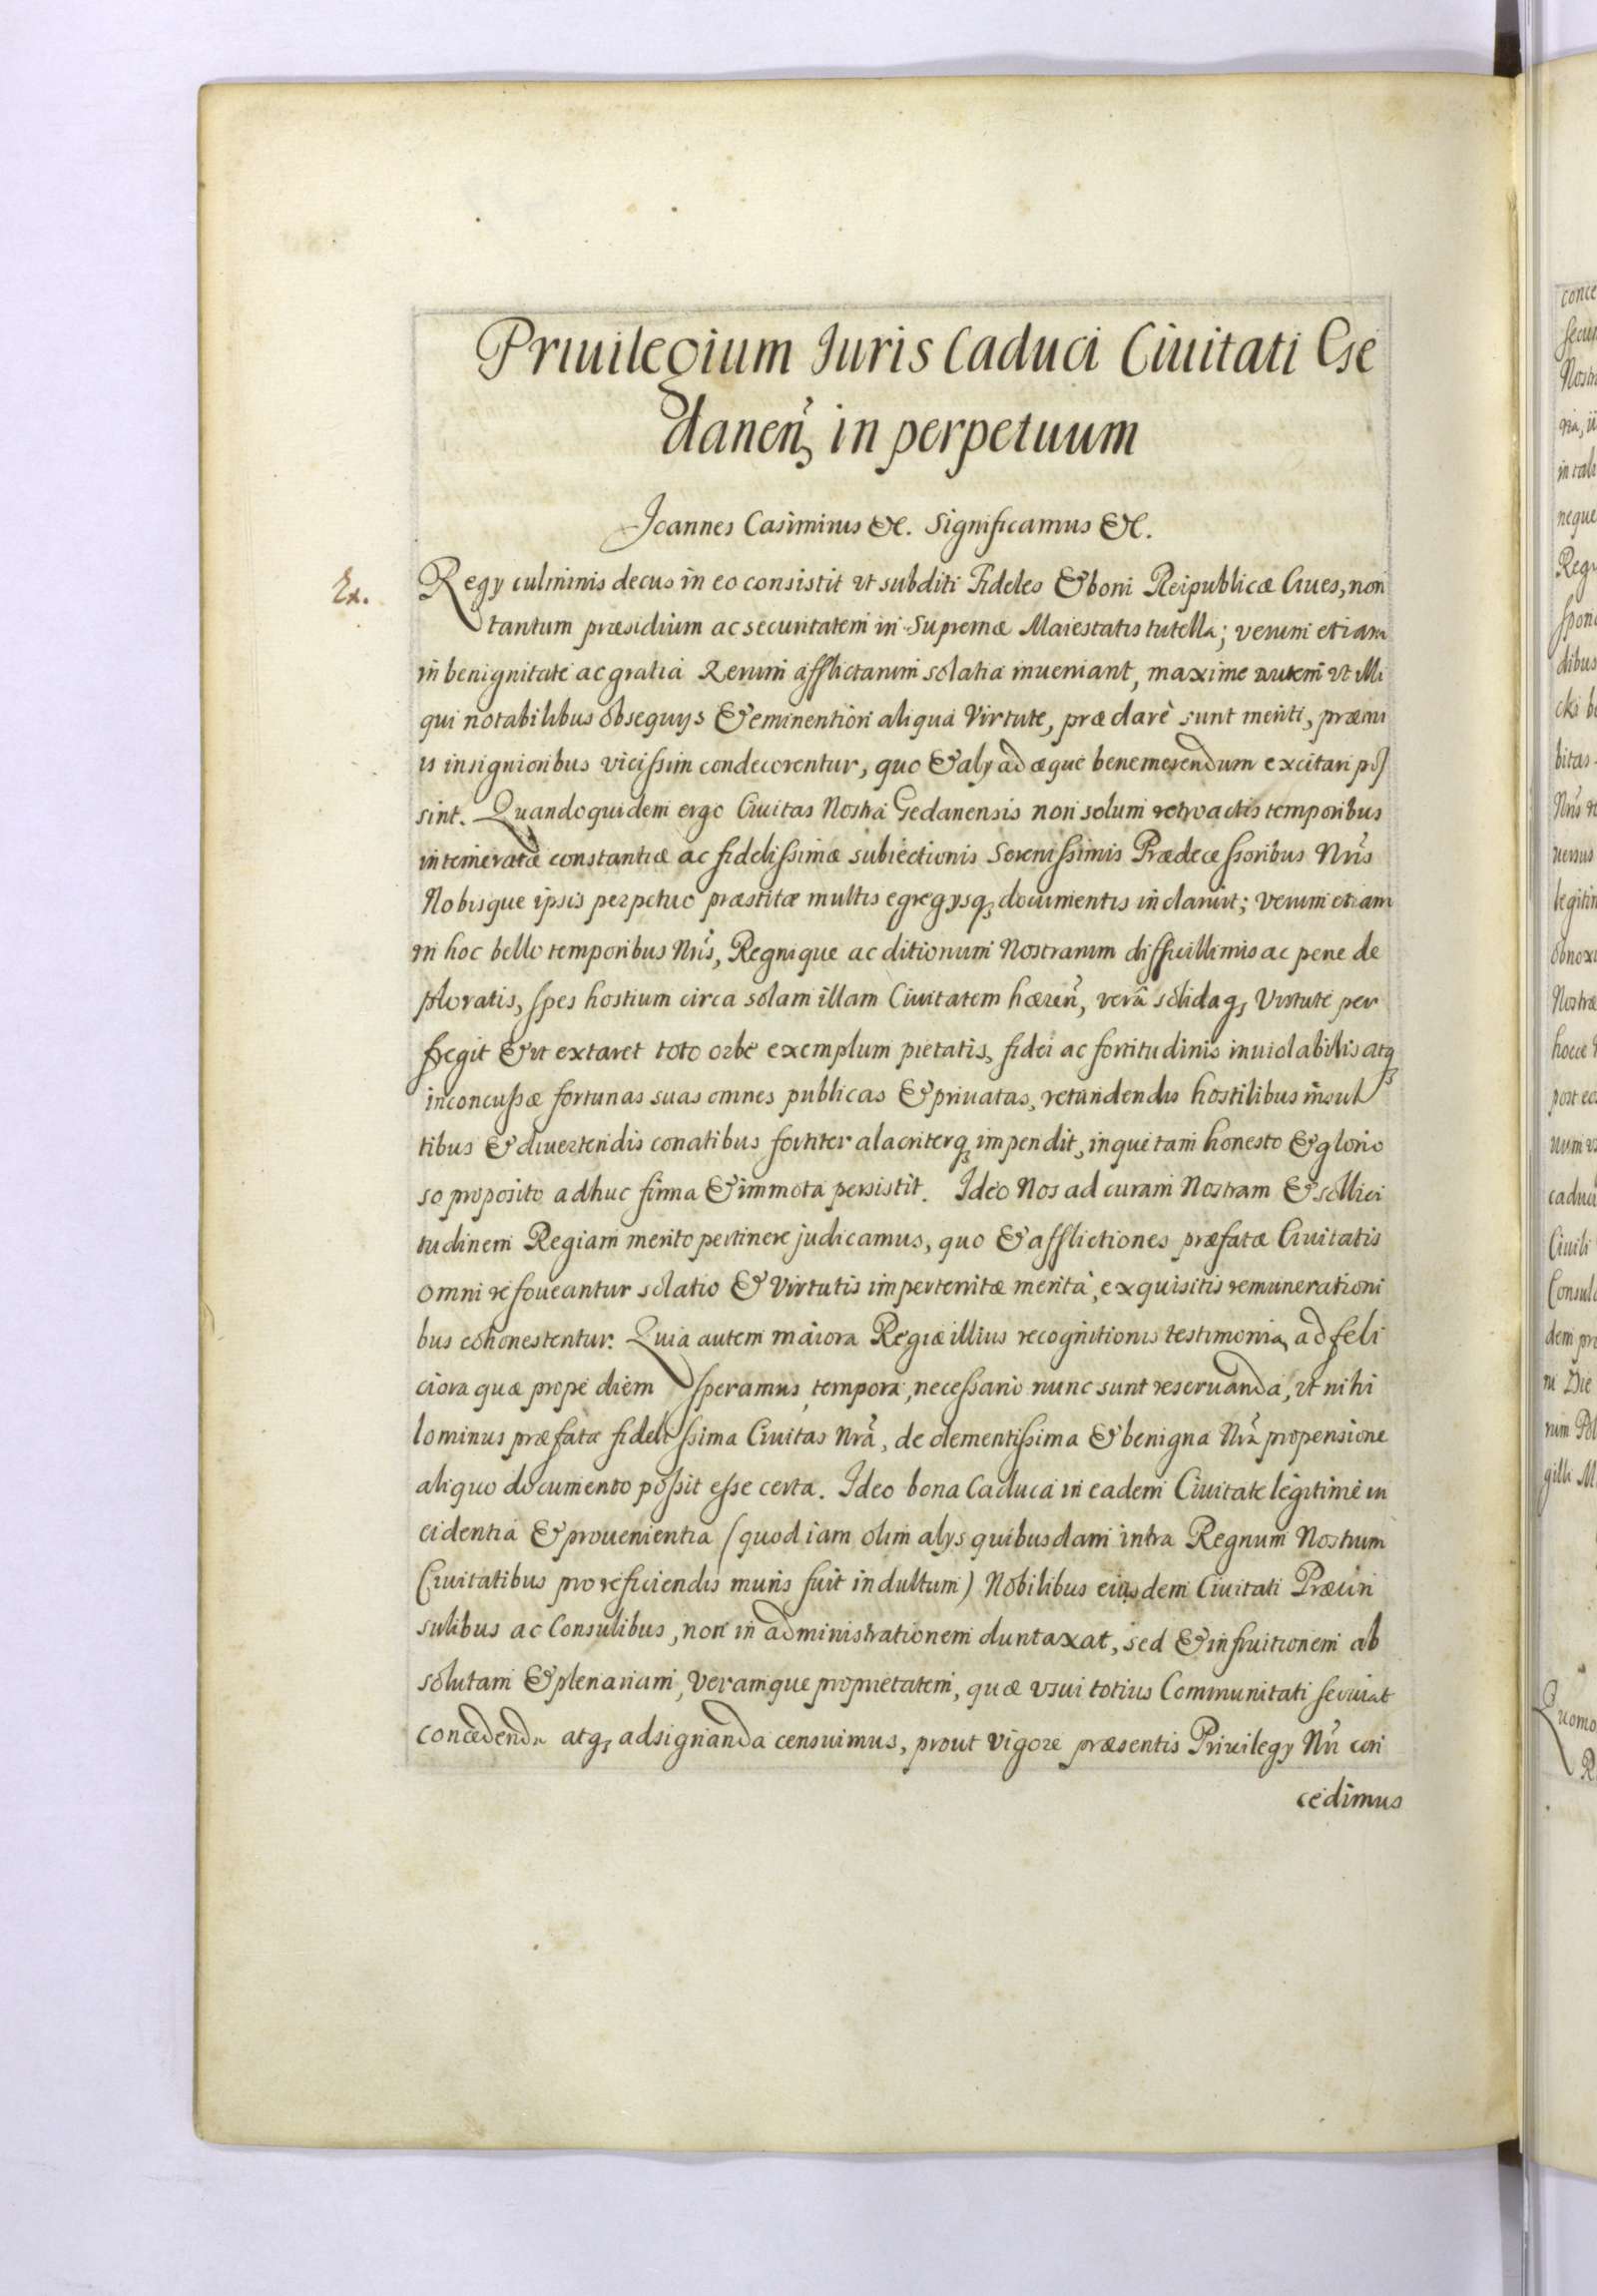 Priuilegium Iuris Caduci Ciuitati Ge
danen̄ in perpetuum
Joannes Casimirus &c. Significamus &c.
Ex.
Regy culminis decus in eo consistit vt subditi Fideles & boni Reipublicæ Ciues, non
tantum præsidium ac securitatem in Supremæ Maiestatis tutella; verum etiam
in benignitate ac gratia Rerum afflictarum solatia inueniant, maxime autem vt illi
qui notabilibus obsequys & eminentiori aliqua Virtute, præclarè sunt meriti, præmi
is insignioribus vicissim condecorentur, quo & aly ad æque benemerendum excitari pos
sint. Quandoquidem ergo Ciuitas Nostra Gedanensis non solum retroactis temporibus
intemeratæ constantiæ ac fidelissimæ subiectionis Serenissimis Prædecessoribus Nrīs
Nobisque ipsis perpetuo præstitæ multis egregysq; documentis inclaruit; verum etiam
in hoc bello temporibus Nrīs, Regnique ac ditionum Nostrarum difficillimis ac pene de
ploratis, spes hostium circa solam illam Ciuitatem hæren̄, verâ solidaq; Virtute per
fregit & vt extaret toto orbe exemplum pietatis, fidei ac fortitudinis inuiolabilis atq;
inconcussæ fortunas suas omnes publicas & priuatas, retundendis hostilibus insul
tibus & diuertendis conatibus fortiter alacriterq; impendit, inque tam honesto & glorio
so proposito adhuc firma & immota persistit. Ideo Nos ad curam Nostram & sollici
tudinem Regiam merito pertinere judicamus, quo & afflictiones præfatæ Ciuitatis
omni refoueantur solatio & Virtutis imperterritæ merita, exquisitis remunerationi
bus cohonestentur. Quia autem maiora Regiæ illius recognitionis testimonia, ad feli
ciora quæ prope diem speramus, tempora, necessario nunc sunt reseruanda, vt nihi
lominus præfata fidelissima Ciuitas Nrā, de clementissima & benigna Nrā propensione
aliquo documento possit esse certa. Ideo bona Caduca in eadem Ciuitate legitimè in
cidentia & prouenientia (quod iam olim alys quibusdam intra Regnum Nostrum
Ciuitatibus pro reficiendis muris fuit indultum) Nobilibus eiusdem Ciuitati Præcon
sulibus ac Consulibus, non in administrationem duntaxat, sed & in fruitionem ab
solutam & plenariam, Veramque proprietatem, quæ vsui totius Communitati seruiat
concedenda atq; adsignanda censuimus, prout vigore præsentis Priuilegy Nrī con
cedimus